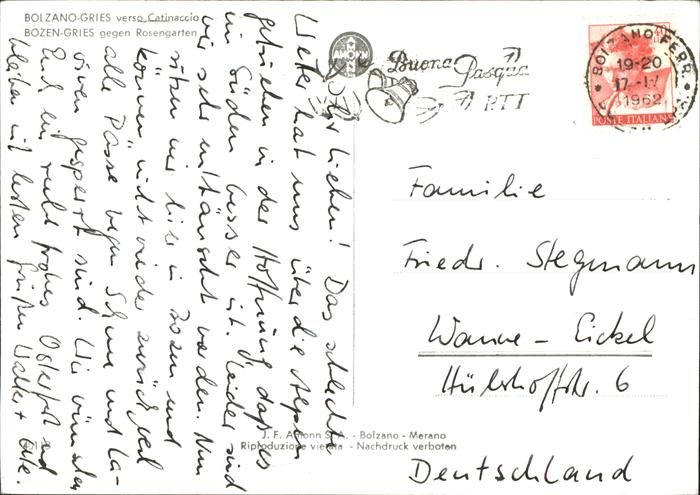 BOLZANO-GRIES verso Catinaccio
BOZEN-GRIES gegen Rosengarten
AMONN
Buona
Pasqua
PTT
BOLZANO FERR.
19-20
17.-IV
1962
POSTE ITALIANE
Ihr Lieben! Das schlechte
Wetter hat uns über die Alpen
getrieben in der Hoffnung daß es
im Süden besser ist. Leider sind
wir sehr enttäuscht worden. Nun
sitzen wir hier in Bozen und
können nicht wieder zurück weil
alle Pässe wegen Schnee und La-
winen gesperrt sind. Wir wünschen
Euch ein recht frohes Osterfest und
bleiben mit besten Grüßen Walter +
Familie
Friedr. Stegmann
Wanne-Eickel
Hülshoffstr. 6
Deutschland
J. F. Amonn S. A. - Bolzano - Merano
Riproduzione vietata - Nachdruck verboten